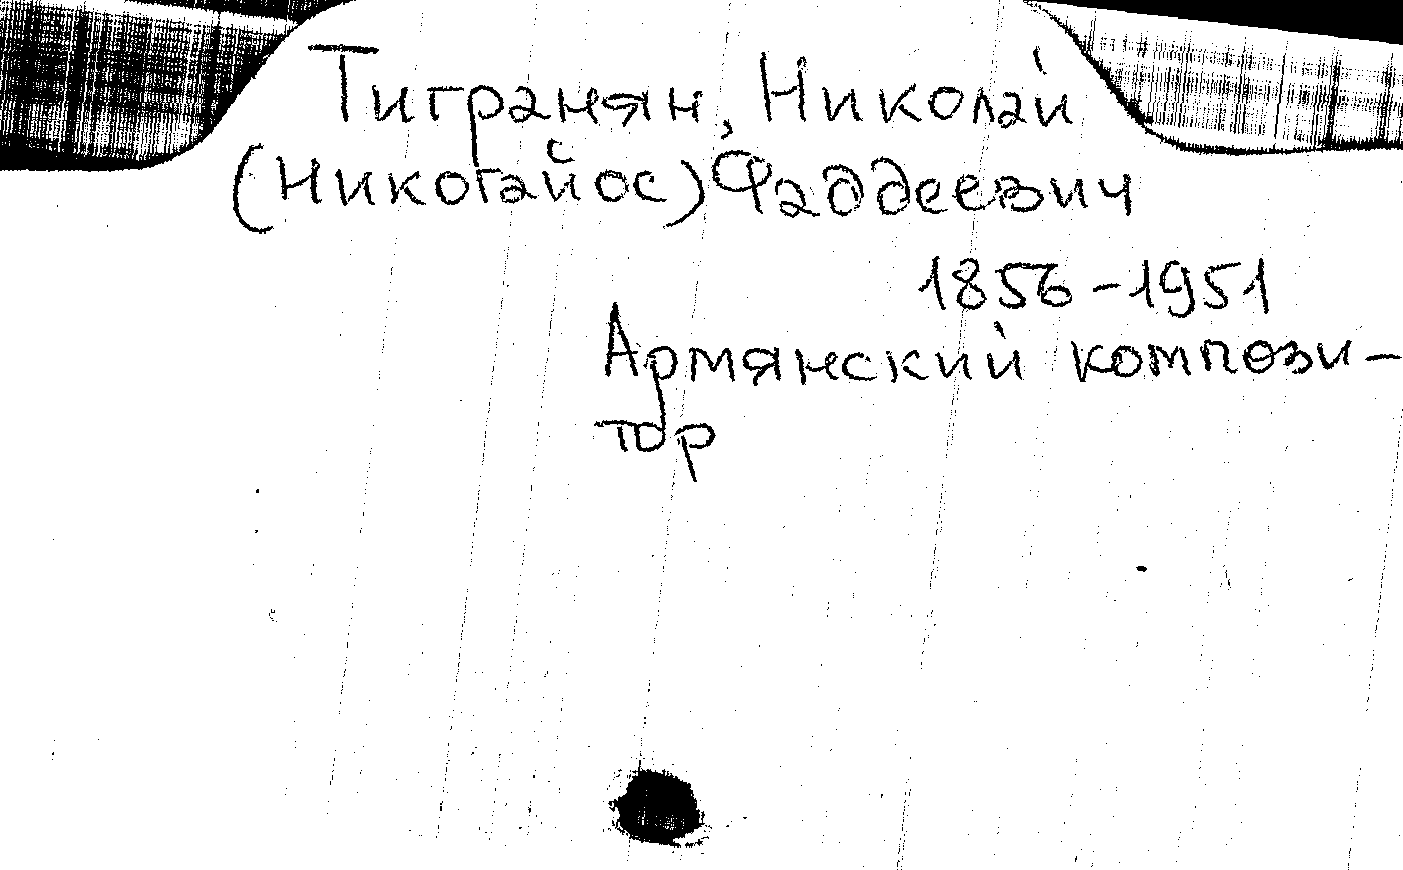 Тигранян, Николай
(Никогайос) Фаддеевич
1856-1951
Армянский компози-
тор